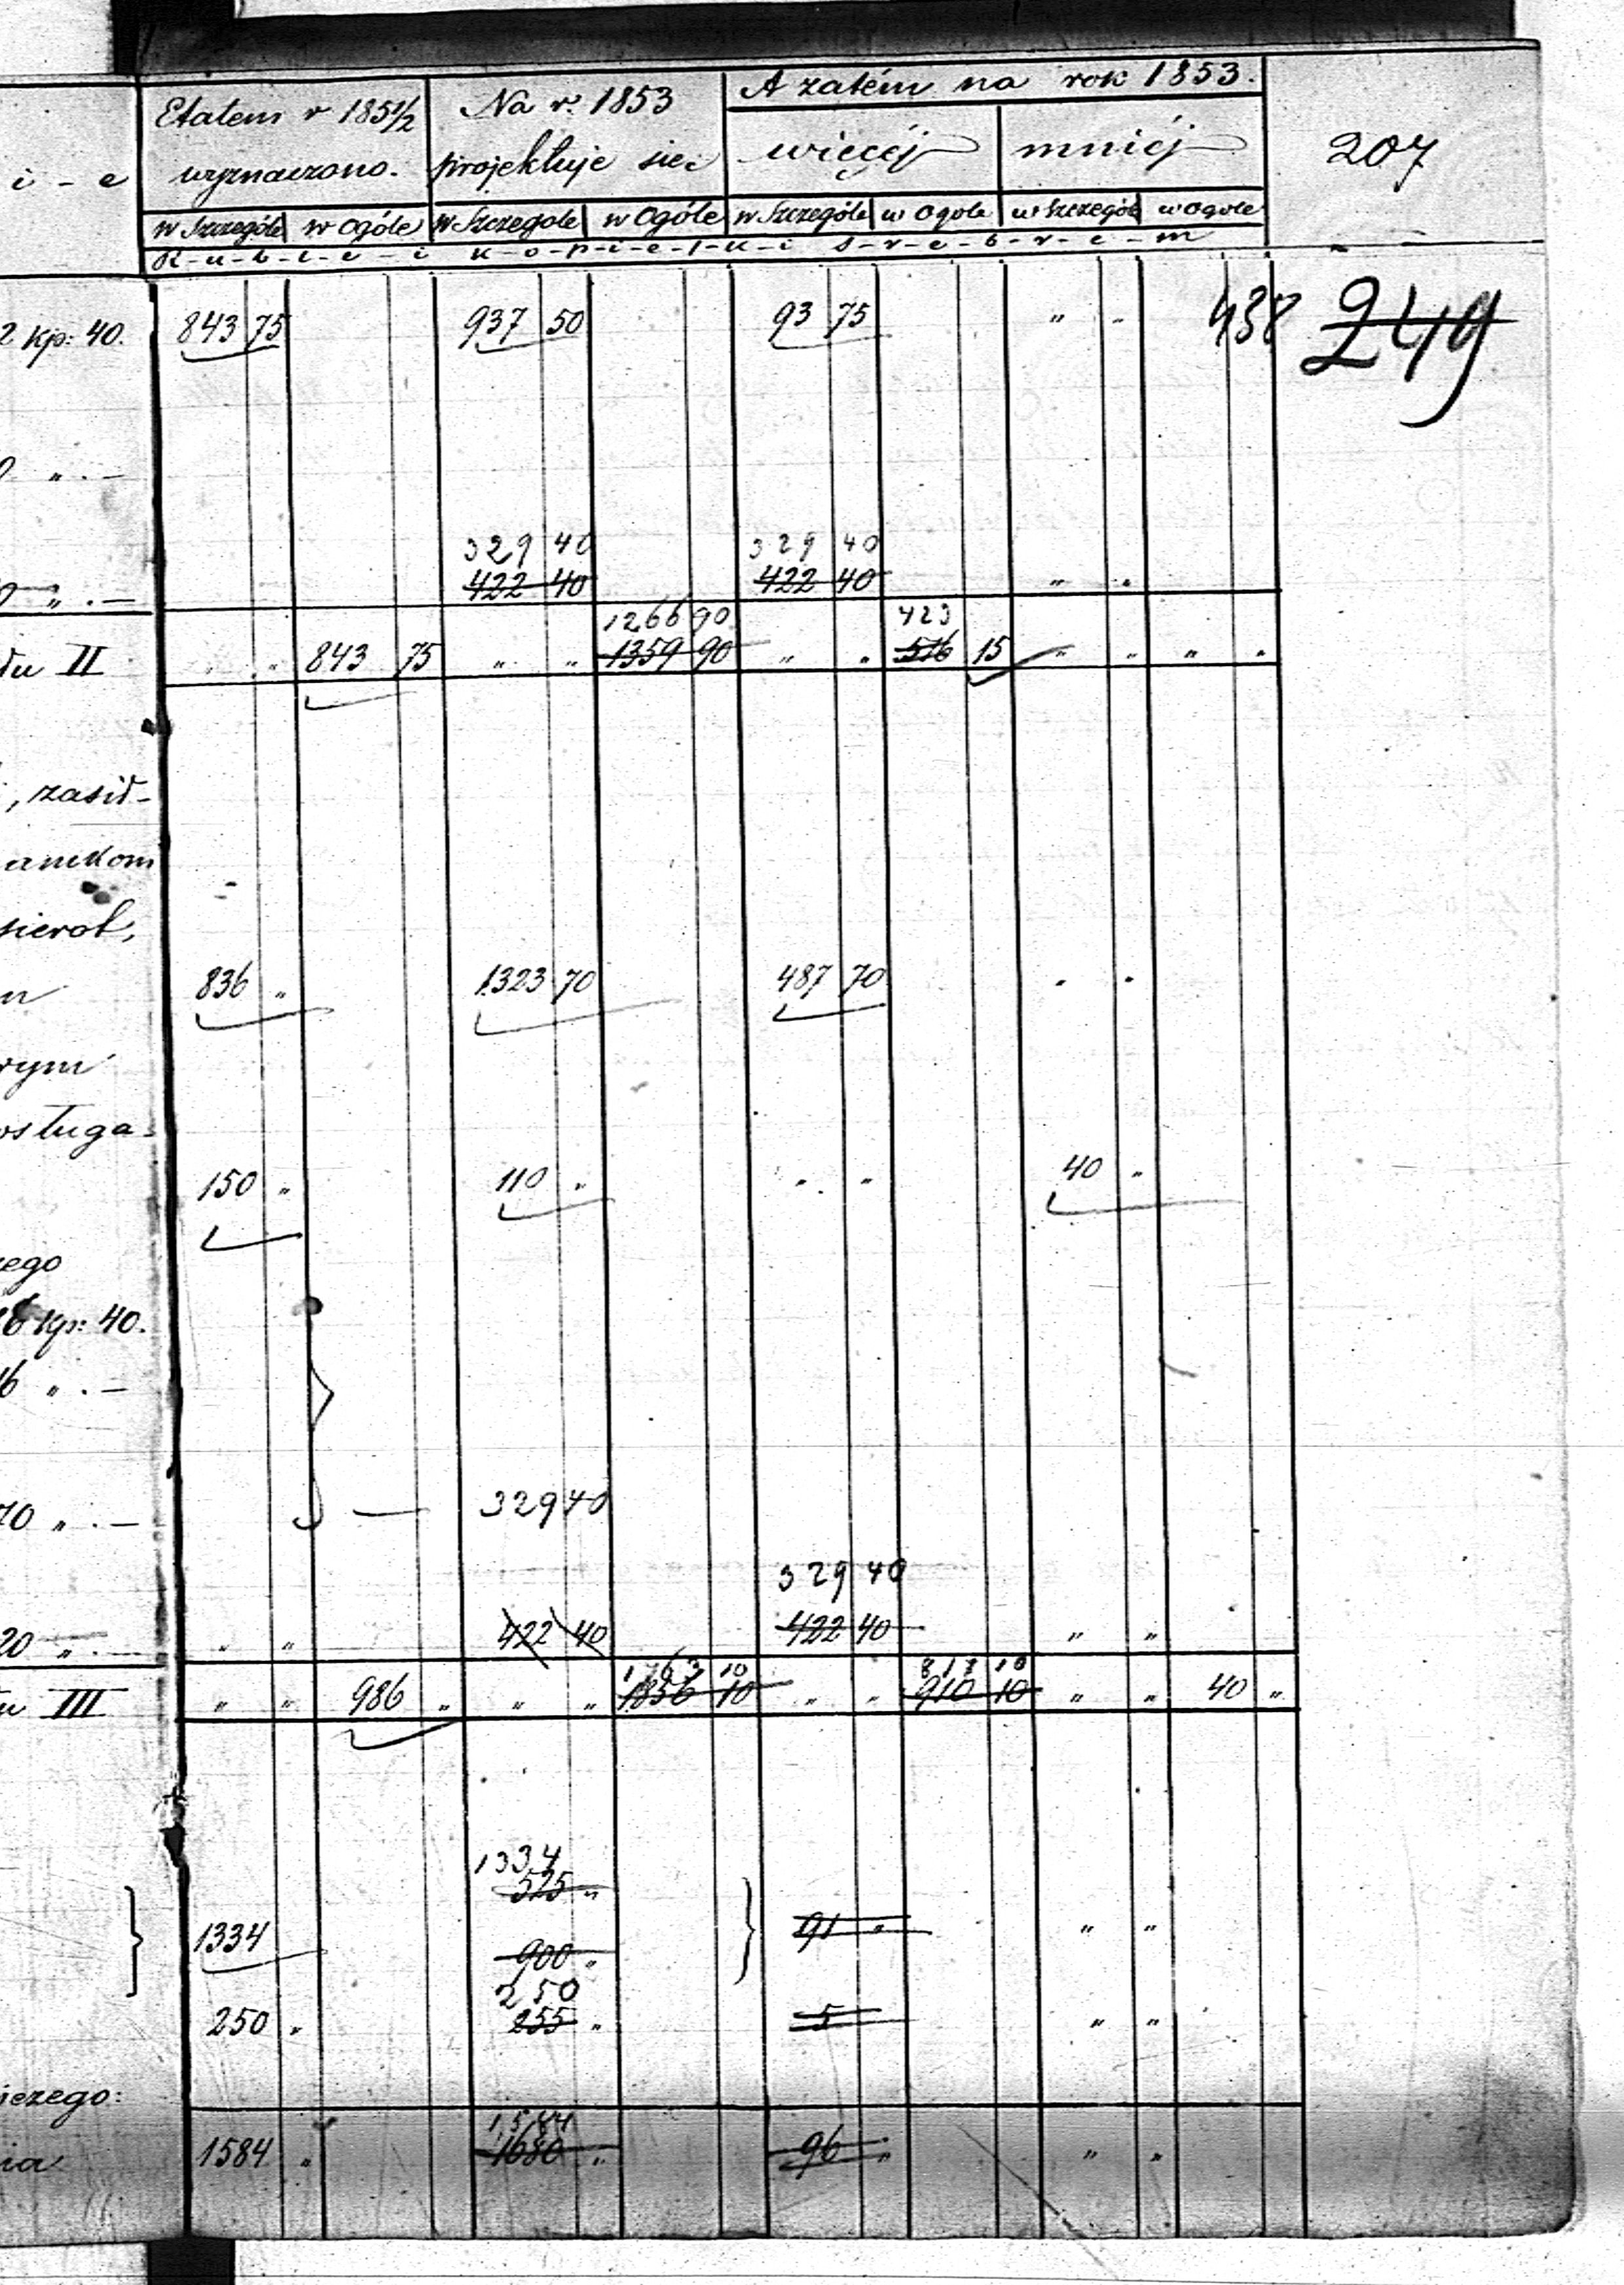 A zatém na rok 1853.
Etatem r 1851/2 Na r. 1853
i - e wyznaczono. projektuje się: więcéj mniéj 207
w Szczególe w Ogóle w Szczegole w Ogóle w Szczególe w Ogole w Szczegól w Ogole
R-u-b-l-e - i k-o-p-i-e-j-k-i s-r-e-b-r-e-m
2 kp: 40. 843 75 937 50 93 75 " " 438 249
0 " . —
329 40 329 40
0 " . — 422 40 422 40 " "
1266 90 423
du II " " 843 75 " " 1359 90 " " 516 15 " " " "
, zasił-
ankom
sierot,
836 " 1323 70 487 70 " "
rym
osługa-
150 " 110 " " " 40 "
zego
86 kp: 40.
16 " . —
70 " . — — 329 40
329 40
20 " . — " " 422 40 422 40 " "
1763 10 817 10
u III " " 986 " " " 1856 10 " " 910 10 " " 40 "
1334
525 "
1334 91 " " "
900 "
250
250 " 255 " 5 " "
iczego:
1584
nia 1584 " 1680 " 96 " " "